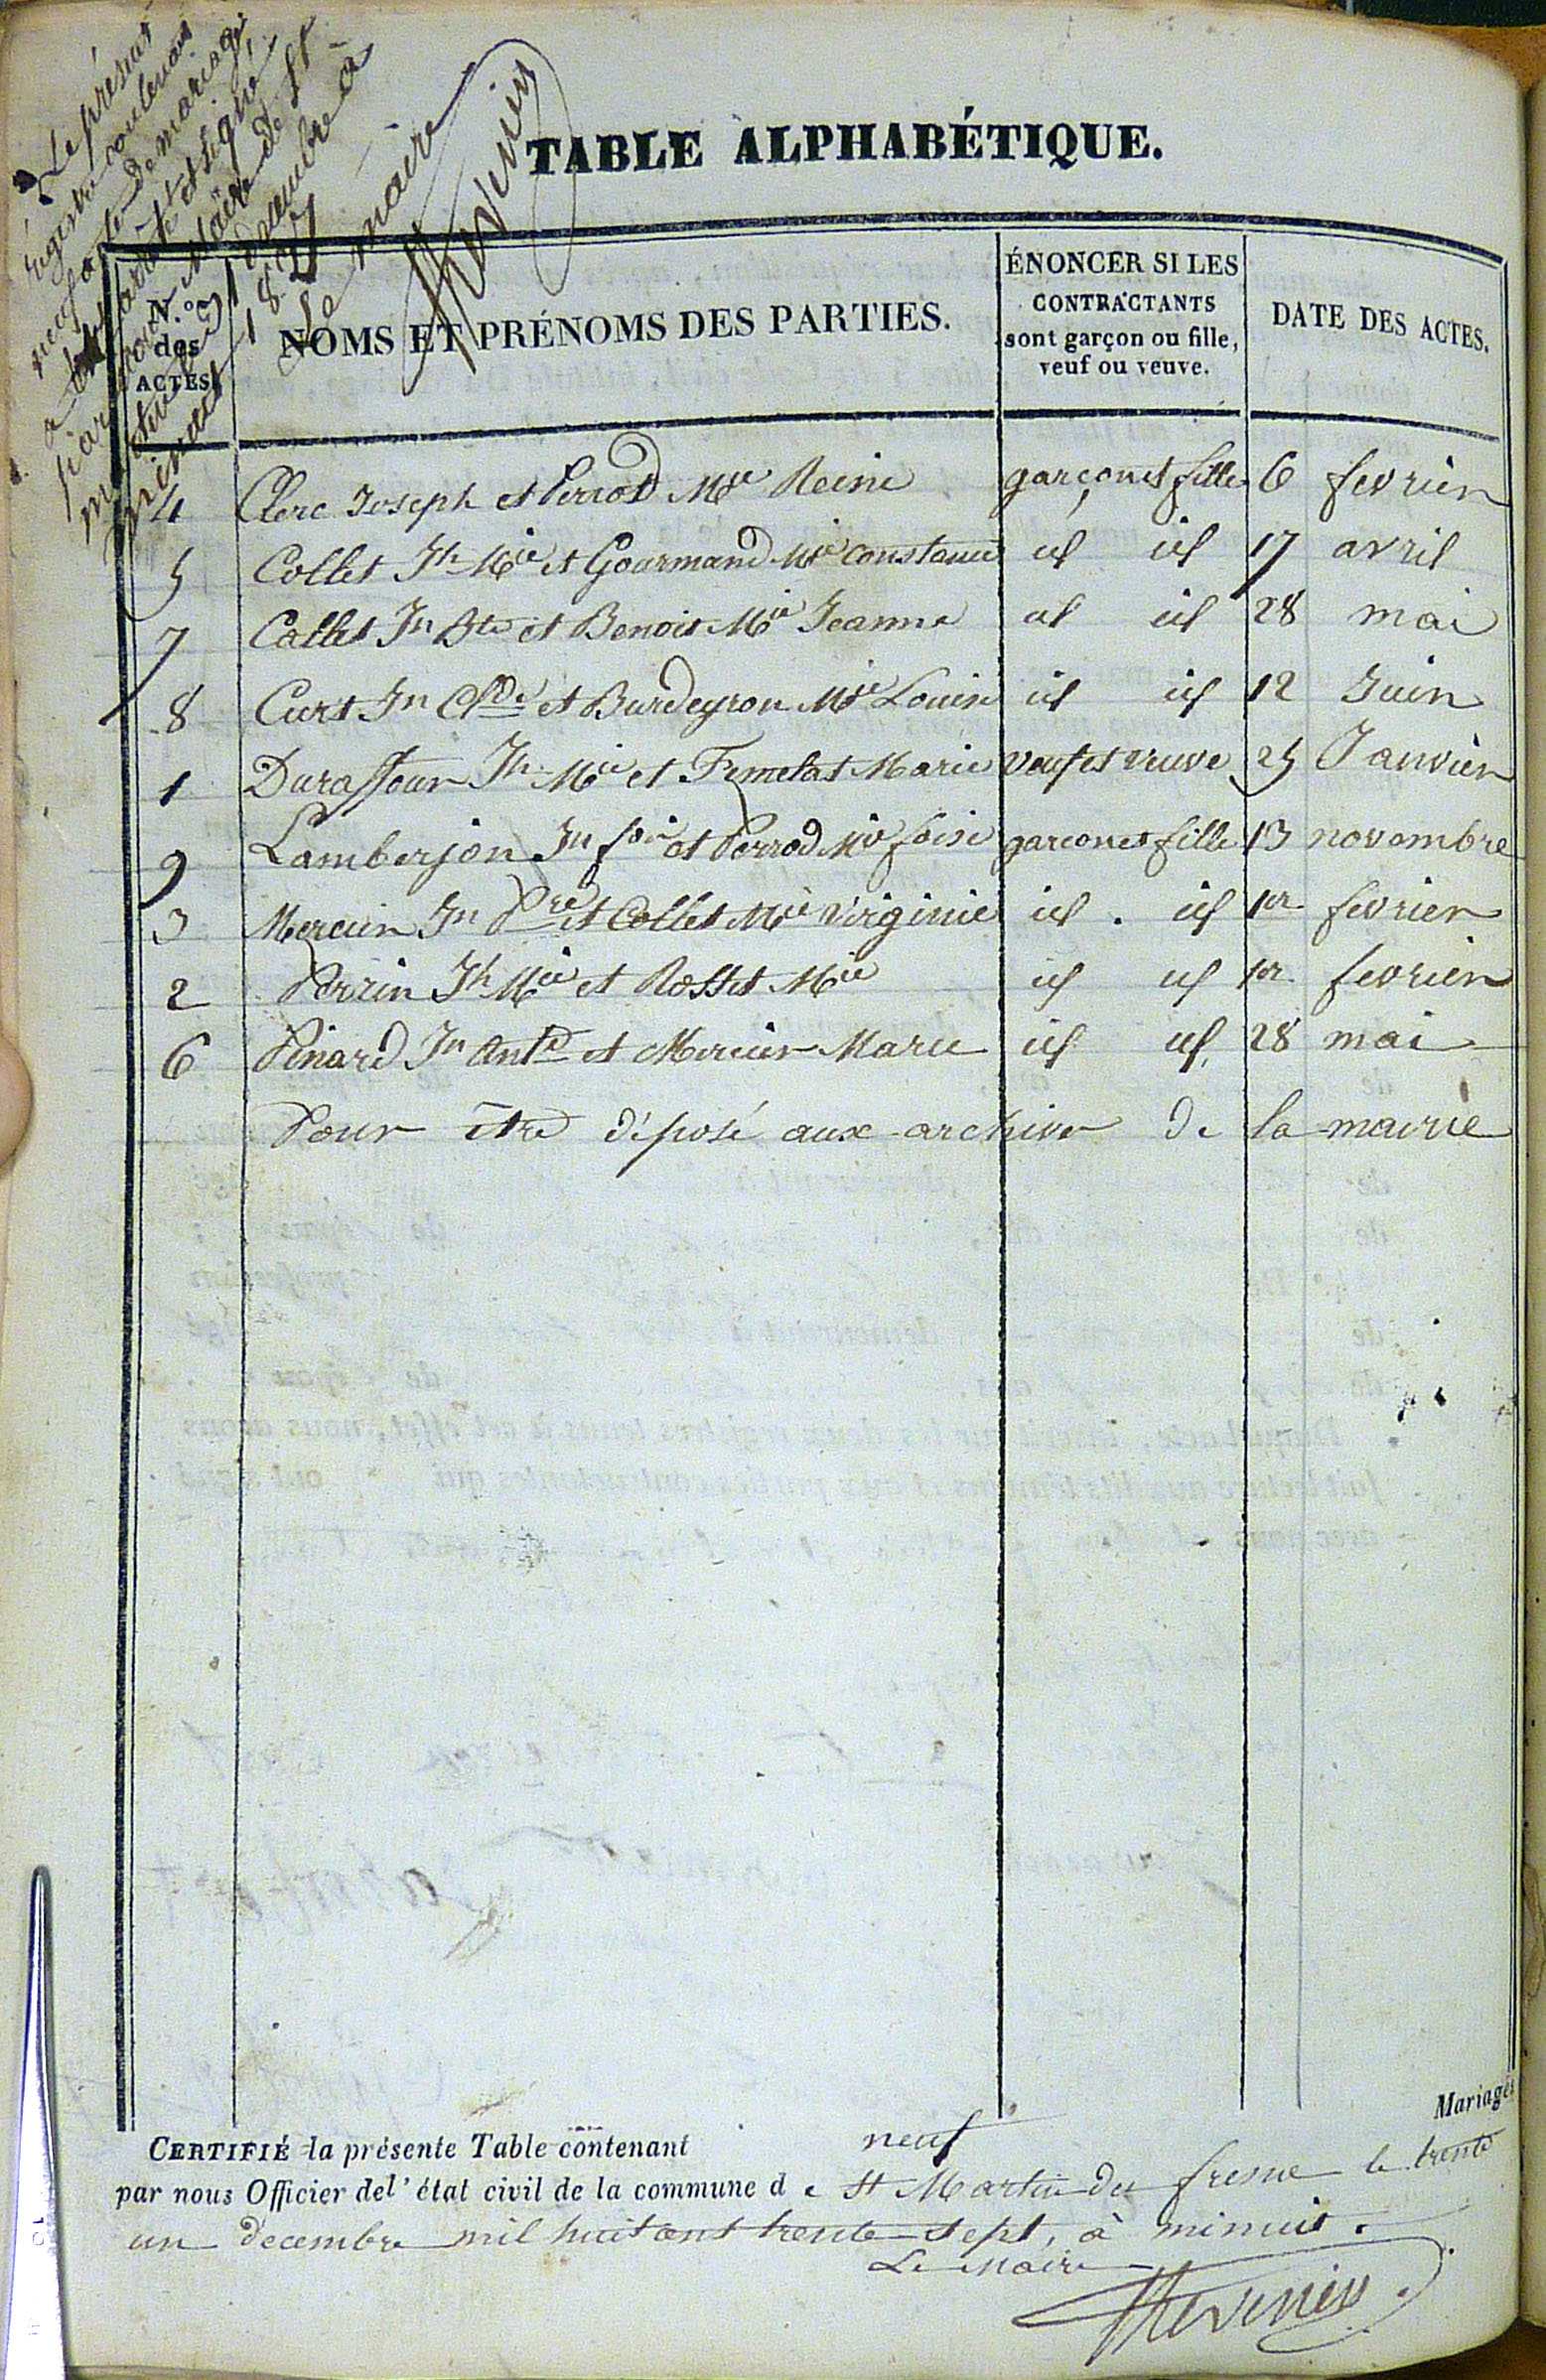 Le présent
registre contenant
neuf actes de mariage
a été arrêté et signé
par nous Maire de St
Martin le 31 décembre à
minuit 1837
Le maire
Thevenin
TABLE ALPHABÉTIQUE.
N.os des ACTES.
NOMS ET PRÉNOMS DES PARTIES.
ÉNONCER SI LES CONTRACTANTS sont garçon ou fille, veuf ou veuve.
DATE DES ACTES.
4 Clerc Joseph et Perrod Mie Reine garçon et fille 6 fevrier
5 Collet Jh Mie et Gourmand Mie constance id id 17 avril
7 Collet Jn Bte et Benoit Mie Jeanne id id 28 mai
8 Curt Jn Clde et Burdeyron Mie Louise id id 12 Juin
1 Duraffour Jh Mie et Femelat Marie veuf et veuve 25 Janvier
9 Lamberjon Jn fois et Perrod Mie foise garçon et fille 13 novembre
3 Mercier Jn Pre et Collet Mie Virginie id . id 1er fevrier
2 Perrin Jh Mie et Rosset Mie id id 1er fevrier
6 Pinard Jn Ante et Mercier Marie id id 28 mai
Pour être déposé aux archives de la mairie
Mariages
CERTIFIÉ la présente Table contenant neuf
par nous Officier del' état civil de la commune d e St Martin du fresne le trente
un décembre mil huit cent trente sept, à minuit.
Le Maire
Thevenin